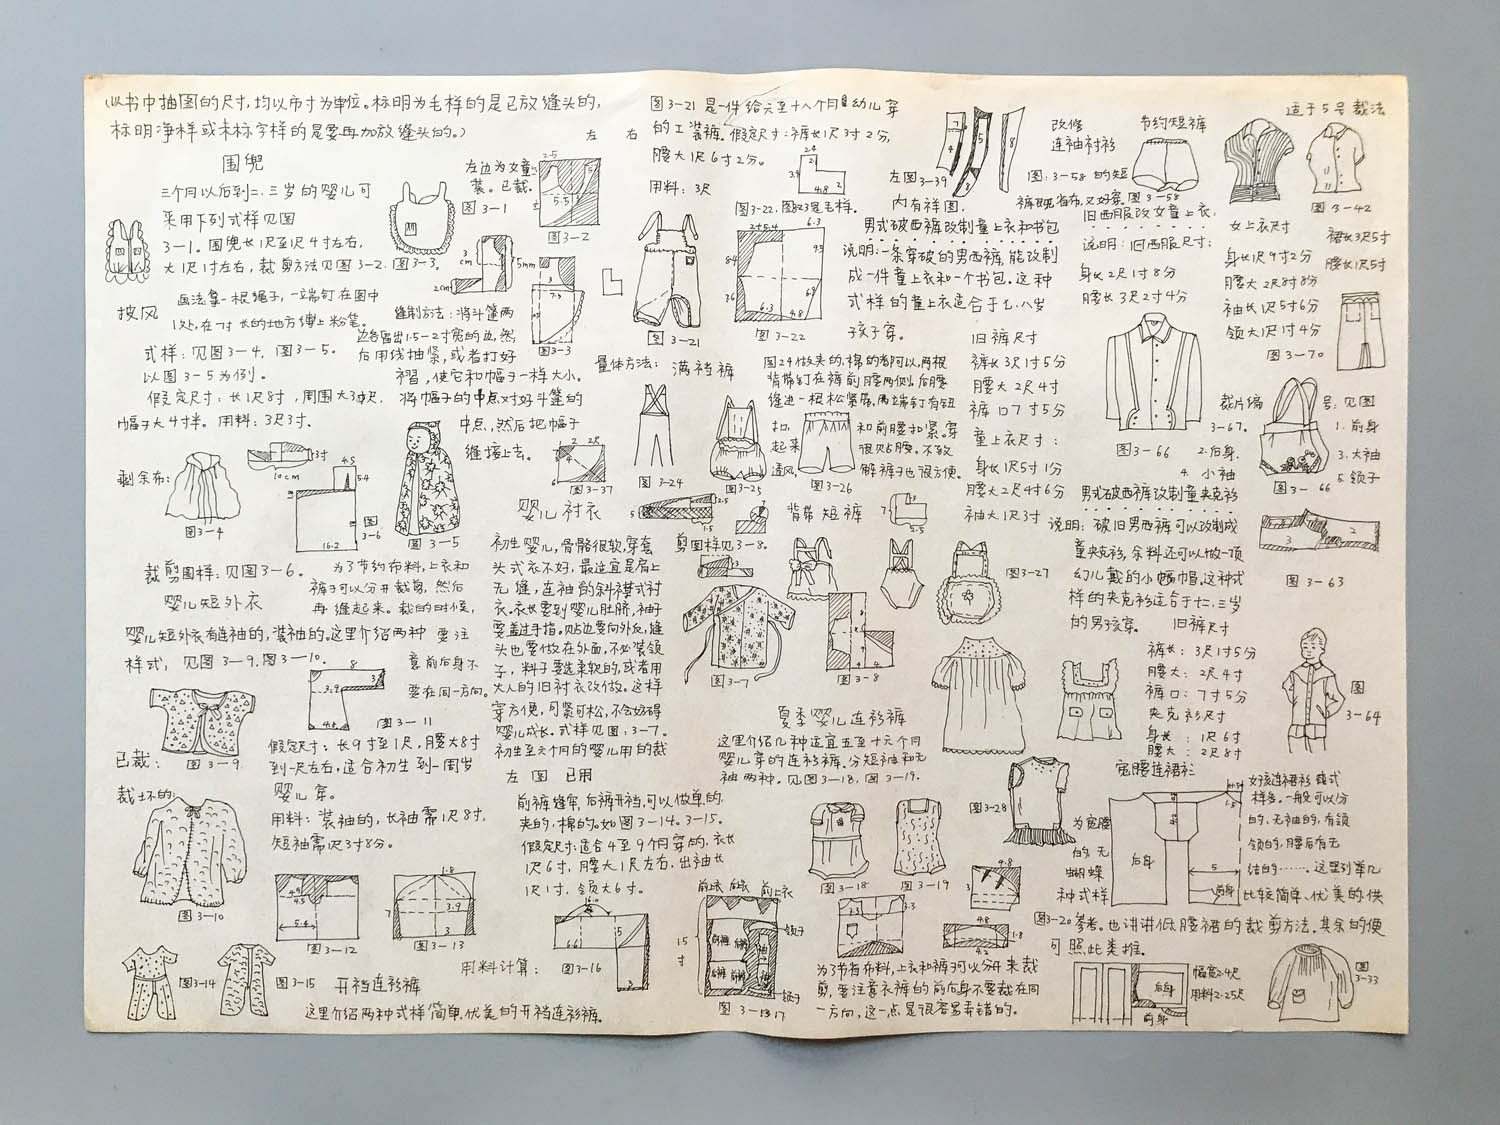 (以书中抽图的尺寸,均以市寸为单位。标明为毛样的是已放缝头的,
标明净样或未标字样的是要再加放缝头的。)
围兜
三个月以后到二、三岁的婴儿可
采用下列式样见图
3-1。围兜长1尺至1尺4寸左右,
大1尺1寸左右,裁剪方法见图3-2.图3-3。
左边为女童
装。已裁。
图3-1
图3-2
左 右
披风
画法拿一根绳子,一端钉在图中
1处,在7寸长的地方缚上粉笔。
式样:见图3-4,图3-5。
以图3-5为例。
假定尺寸:长1尺8寸,周围大3尺,
帽子大4寸半。用料:3尺3寸、
缝制方法:将斗篷两
边各留出1.5-2寸宽的边,然
后用线抽紧,或者打好
褶,使它和帽子一样大小。
将帽子的中点对好斗篷的
中点,然后把帽子
缝接上去。
图3-3
剩余布:
图3-4
10cm
16.2
图
3-6
图3-5
图3-37
裁剪图样:见图3-6。
婴儿短外衣
为了节约布料,上衣和
裤子可以分开裁剪,然后
再缝起来。裁的时候,
要注
意前后身不
要在同一方向。
婴儿短外衣有连袖的,装袖的。这里介绍两种
样式,见图3-9.图3-10.
图3-11
已裁:
图3-9
假定尺寸:长9寸至1尺,腰大8寸
到一尺左右,适合初生到一周岁
婴儿穿。
用料:装袖的,长袖需1尺8寸,
短袖需1尺3寸8分。
裁坏的:
图3-10
图3-12
图3-13
图3-14
图3-15
开裆连衫裤
这里介绍两种式样简单,优美的开裆连衫裤。
用料计算:
图3-16
婴儿衬衣
初生婴儿,骨骼很软,穿套
头式衣不好,最适宜是肩上
无缝,连袖的斜襟式衬
衣。衣长要到婴儿肚脐,袖子
要盖过手指。贴边要向外反,缝
头也要做在外面,不必装领
子,料子要选柔软的,或者用
大人的旧衬衣改做。这样
穿方便,可紧可松,不会妨碍
婴儿成长。式样见图:3-7。
初生至六个月的婴儿用的裁
左图 已用
前裤缝牢,后裤开裆,可以做单的,
夹的,棉的。如图3-14。3-15。
假定尺寸:适合4至9个月穿的。衣长
1尺6寸,腰大1尺左右,出袖长
1尺1寸,领大6寸。
图3-21是一件给六至十八个月幼儿穿
的工装裤。假定尺寸:裤长1尺3寸2分,
腰大1尺6寸2分。
用料:3尺
图3-22.图23是毛样。
图3-21
图3-22
量体方法:满裆裤
图24做夹的,棉的都可以,两根
背带钉在裤前腰两侧,后腰
缝进一根松紧带,两端钉有钮
扣,
起来
透风,
和前腰扣紧。穿
很贴腰。不致
解裤子也很方便。
图3-24
图3-25
图3-26
背带短裤
剪图样见3-8。
图3-27
图3-7
图3-8
夏季婴儿连衫裤
这里介绍几种适宜五至十六个月
婴儿穿的连衫裤。分短袖和无
袖两种。见图3-18,图3-19.
图3-18
图3-19
图3-28
前上衣
前上衣
领子
领子
15
寸
图3-17
为了节省布料,上衣和裤子可以分开来裁
剪,要注意衣裤的前后身不要裁在同
一方向,这一点是很容易弄错的。
左图3-39
内有祥图.
改修
连袖衬衫
图:3-58的短
节约短裤
图3-58
适于5号裁法
图3-42
男式破西裤改制童上衣和书包
说明:一条穿破的男西裤,能改制
成一件童上衣和一个书包。这种
式样的童上衣适合于七、八岁
孩子穿。
旧裤尺寸
裤长3尺1寸5分
腰大2尺4寸
裤口7寸5分
童上衣尺寸:
身长1尺5寸1分
腰大2尺4寸6分
袖大1尺3寸
旧西服改女童上衣:
说明:旧西服尺寸:
身长2尺1寸8分
腰长3尺2寸4分
女上衣尺寸
身长1尺9寸2分
腰大2尺8寸8分
袖长1尺5寸6分
领大1尺1寸4分
裙长3尺5寸
腰长1尺5寸
图3-70
图3-66
裁片编
号:见图
3-67。
1.前身
2.后身.
3.大袖
4.小袖
5.领子
图3-66
男式破西裤改制童夹克衫
说明:破旧男西裤可以改制成
童夹克衫,余料还可以做一顶
幼儿戴的小帽巾冒。这种式
样的夹克衫适合于七、三岁
的男孩穿。
旧裤尺寸
裤长:3尺1寸5分
腰大:2尺4寸
裤口:7寸5分
夹克衫尺寸
身长:1尺6寸
腰大:2尺8寸
图3-63
图
3-64
宽腰连裙衫
为宽腰
的无
蝴蝶
种式样
后身
女孩连裙衫款式
样多。一般可以分
的,无袖的,有领
领的,腰后有无
结的……这里列举几
比较简单、优美的供
图3-20参考。也讲讲低腰裙的裁剪方法。其余的便
可照此类推。
后身
前身
幅宽2.4尺
用料2.25尺
图
3-33